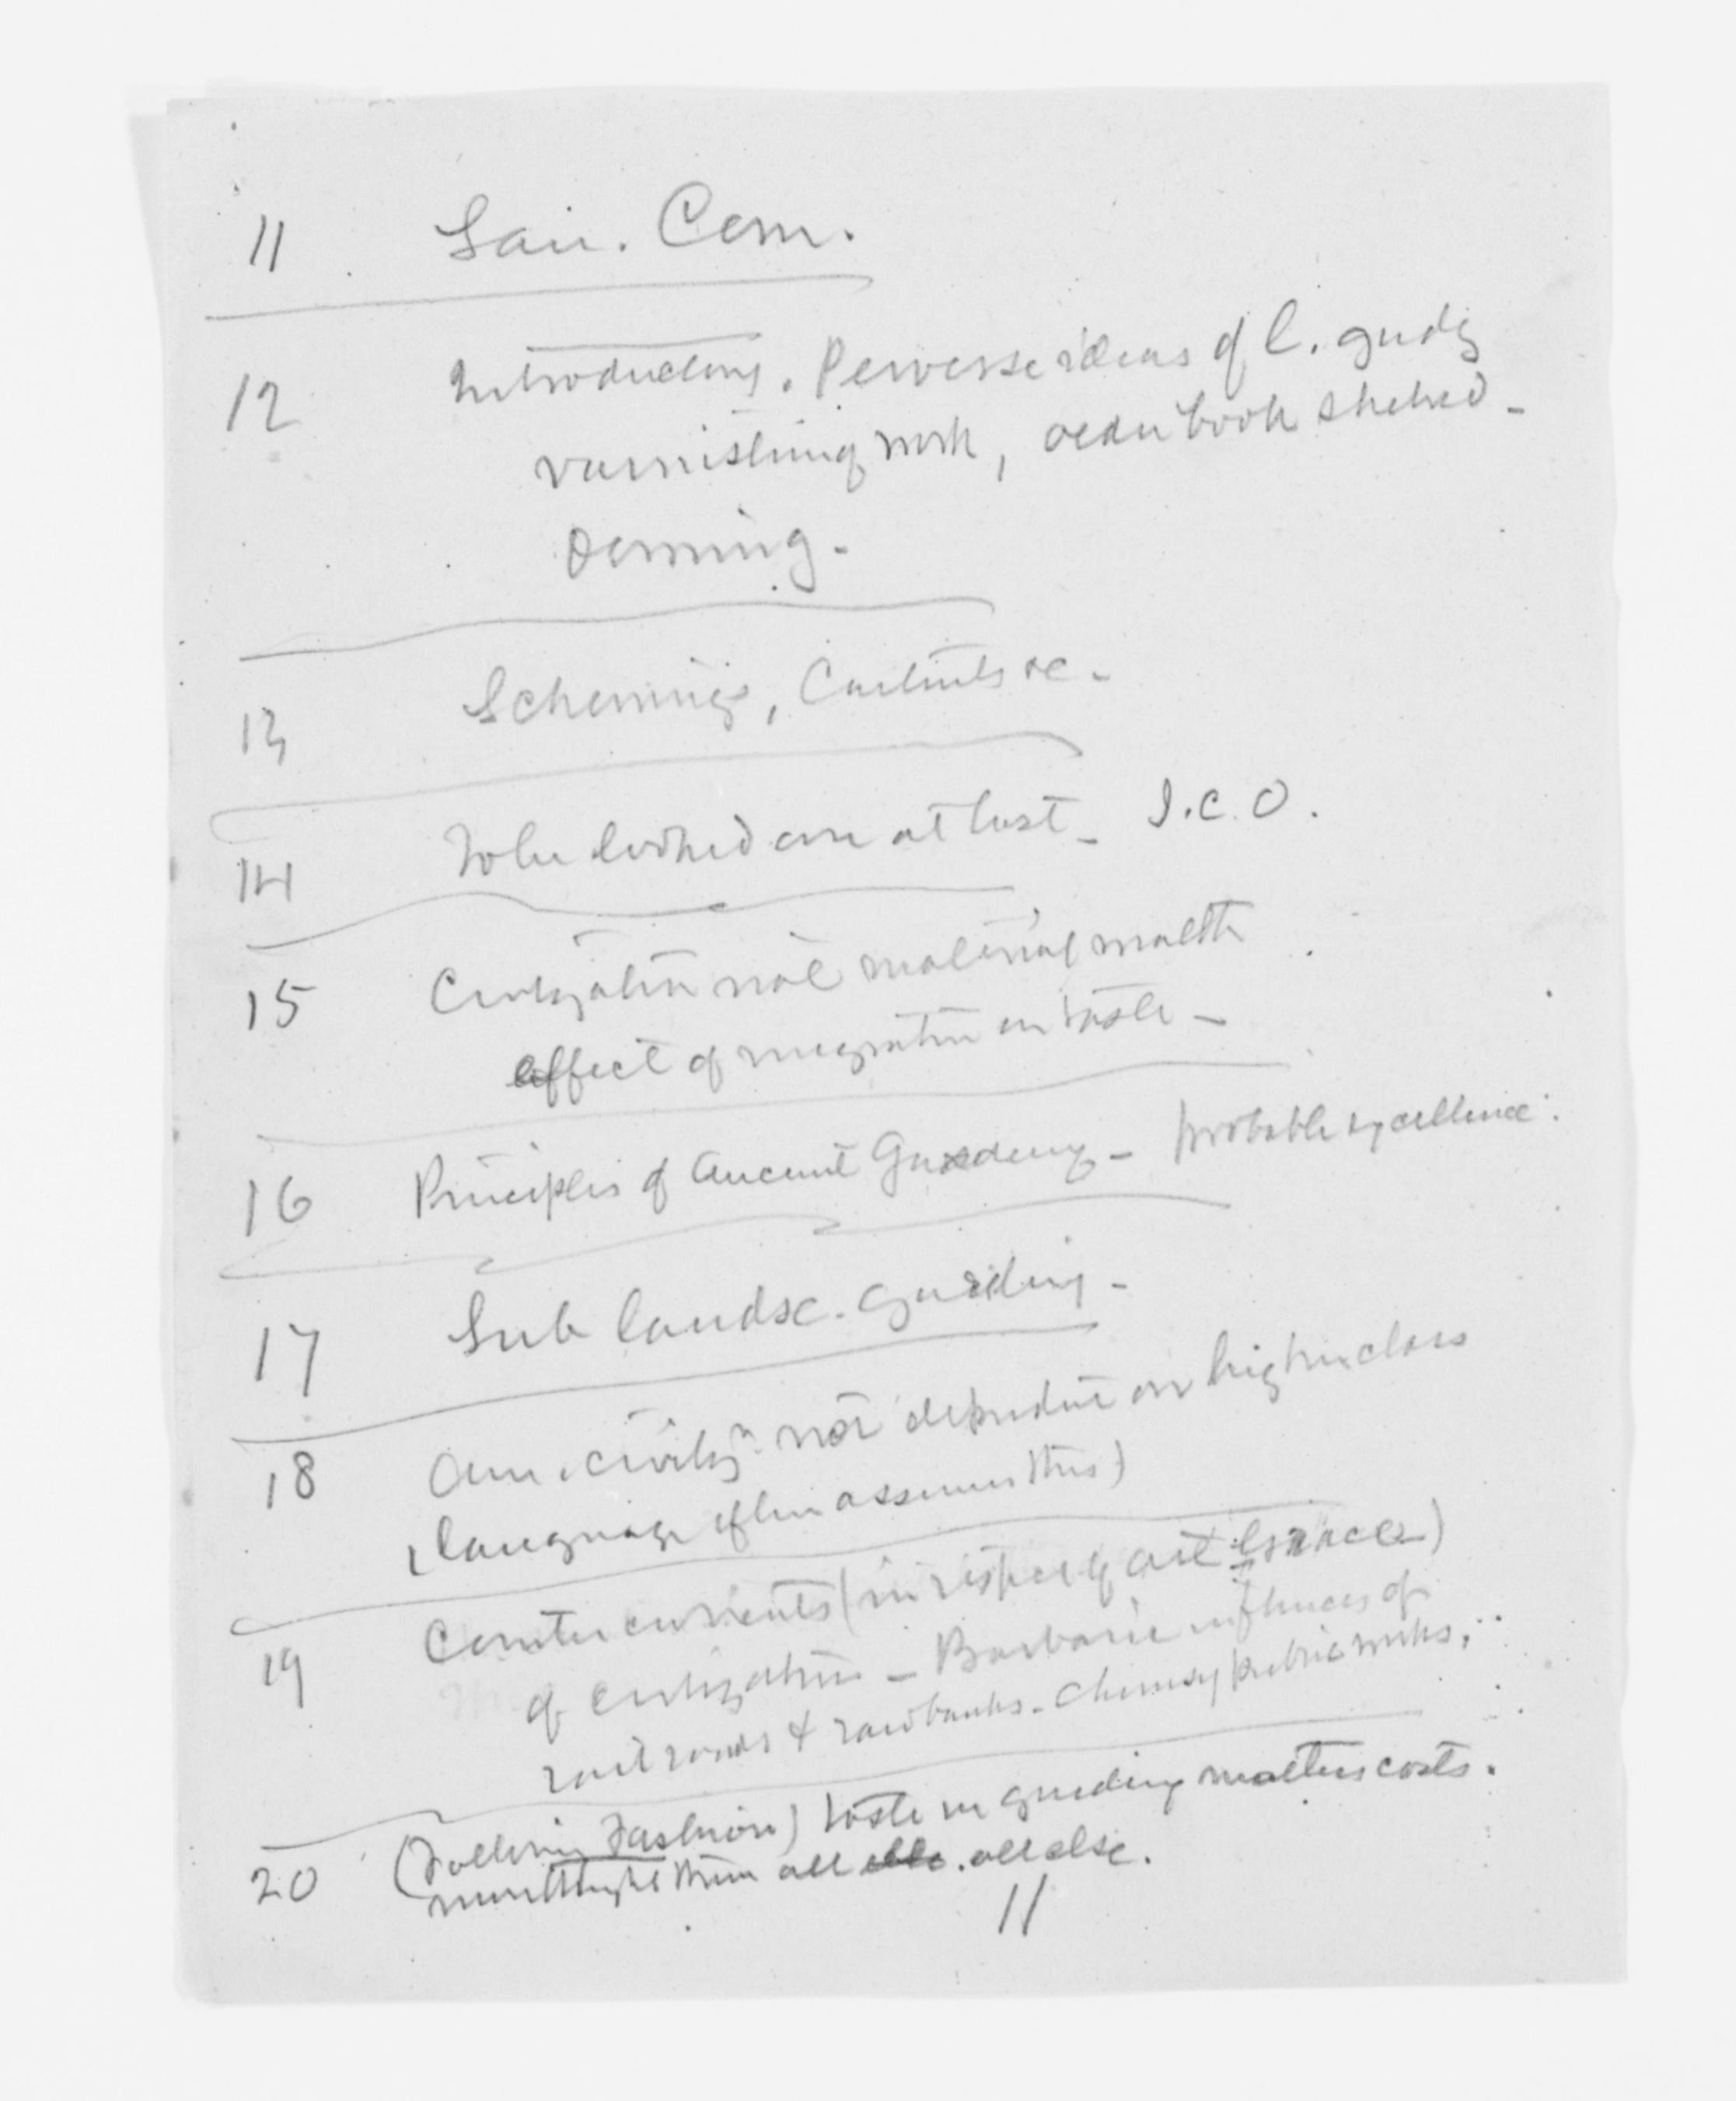 11 San. Com.
12 Introductory. Perverse ideas of l. gardg
varnishing work, book shelved -
Deming.
13 Schemings, Contents &c.
14 To be looked over at last - I.C.O.
15 Civilization not material wealth
effect of migration on taste -
16 Principles of Ancient Gardening - probable excellence.
17 Sub landsc. gardening -
18 Am. civilizn. not dependent on higher class
(language often assumes this)
19 Counter currents (in respect of art
of civilization - Barbaric influences of
rail roads & raw banks. Clumsy public works.
20 (Following Fashion) taste in gardening matters costs.
all else. all else.
11